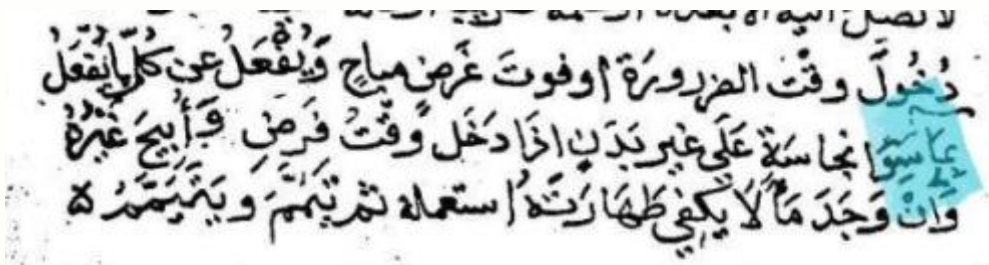 لا تصل اليه الا بعده او
دُخُولَ وقْت الضرورَة اوفوتَ غَرض مباح وَيُفْعَلُ عن كُلِّ مايُفعَلُ
بماسِوَا نجاسَةٍ عَلَى غير بَدَنٍ اذَا دَخَل وَقْتُ فَرضٍ وَأُبيحَ غَيْرُهُ
وَانْ وَجَدَ مَاً لَا يَكفِي طَهَارَتَهُ استعمله ثم تيَمَّمَ وَيَتَيَمَّمُ